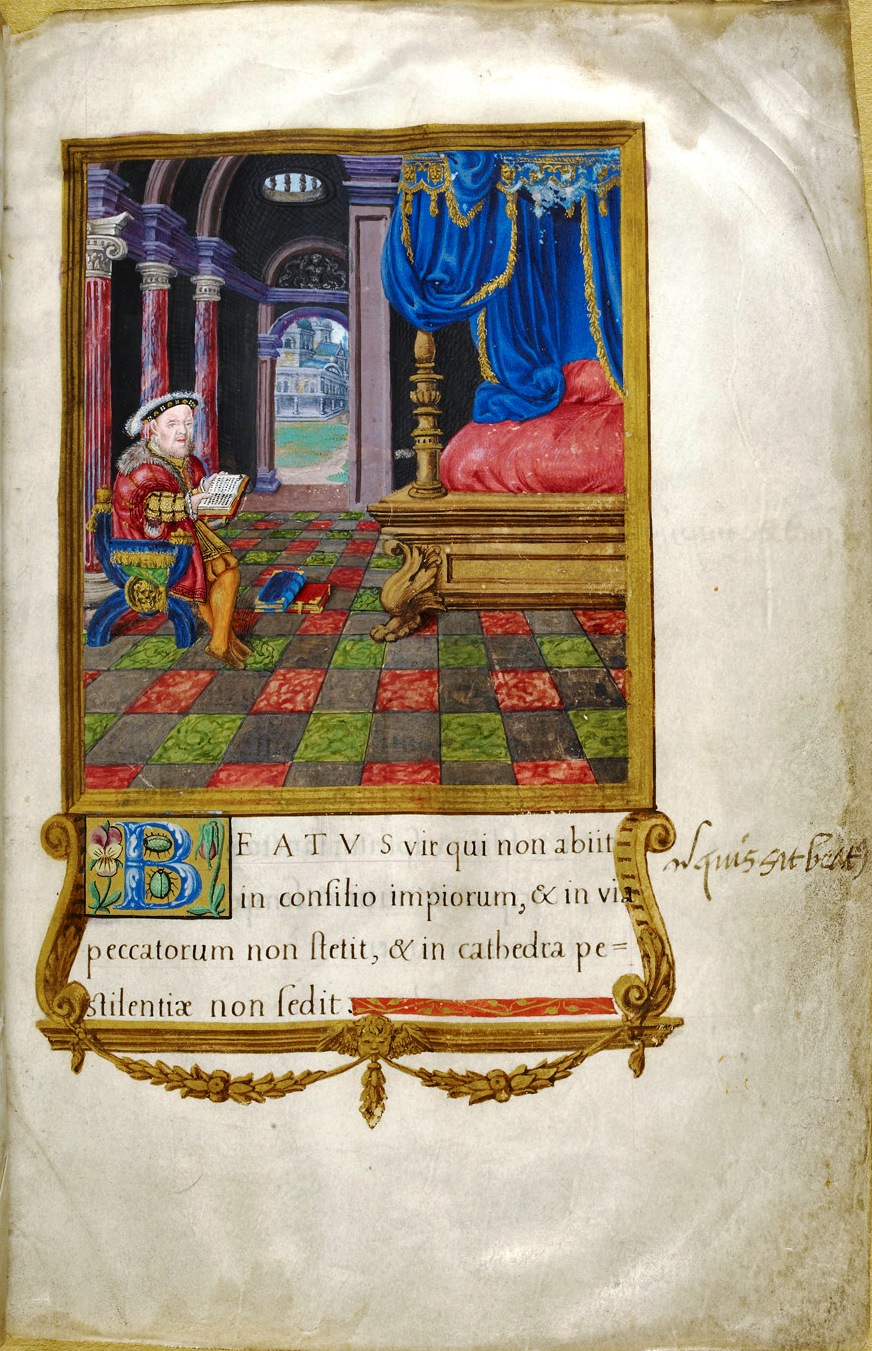 BEATVS vir qui non abiit
in conſilio impiorum, & in via
peccatorum non ſtetit, & in cathedra pe=
ſtilentiæ non ſedit.
quis sit beat